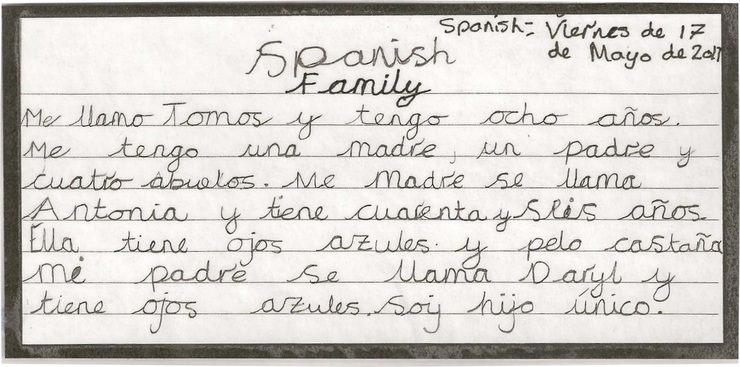 Spanish- Viernes de 17
de Mayo de 2017
Spanish
Family
Me llamo Tomos y tengo ocho años.
Me tengo una madre, un padre y
cuatro abuelos. Me madre se llama
Antonia y tiene cuarenta y seis años.
Ella tiene ojos azules. y pelo castaña
Mi padre se llama Daryl y
tiene ojos azules. Soy hijo único.